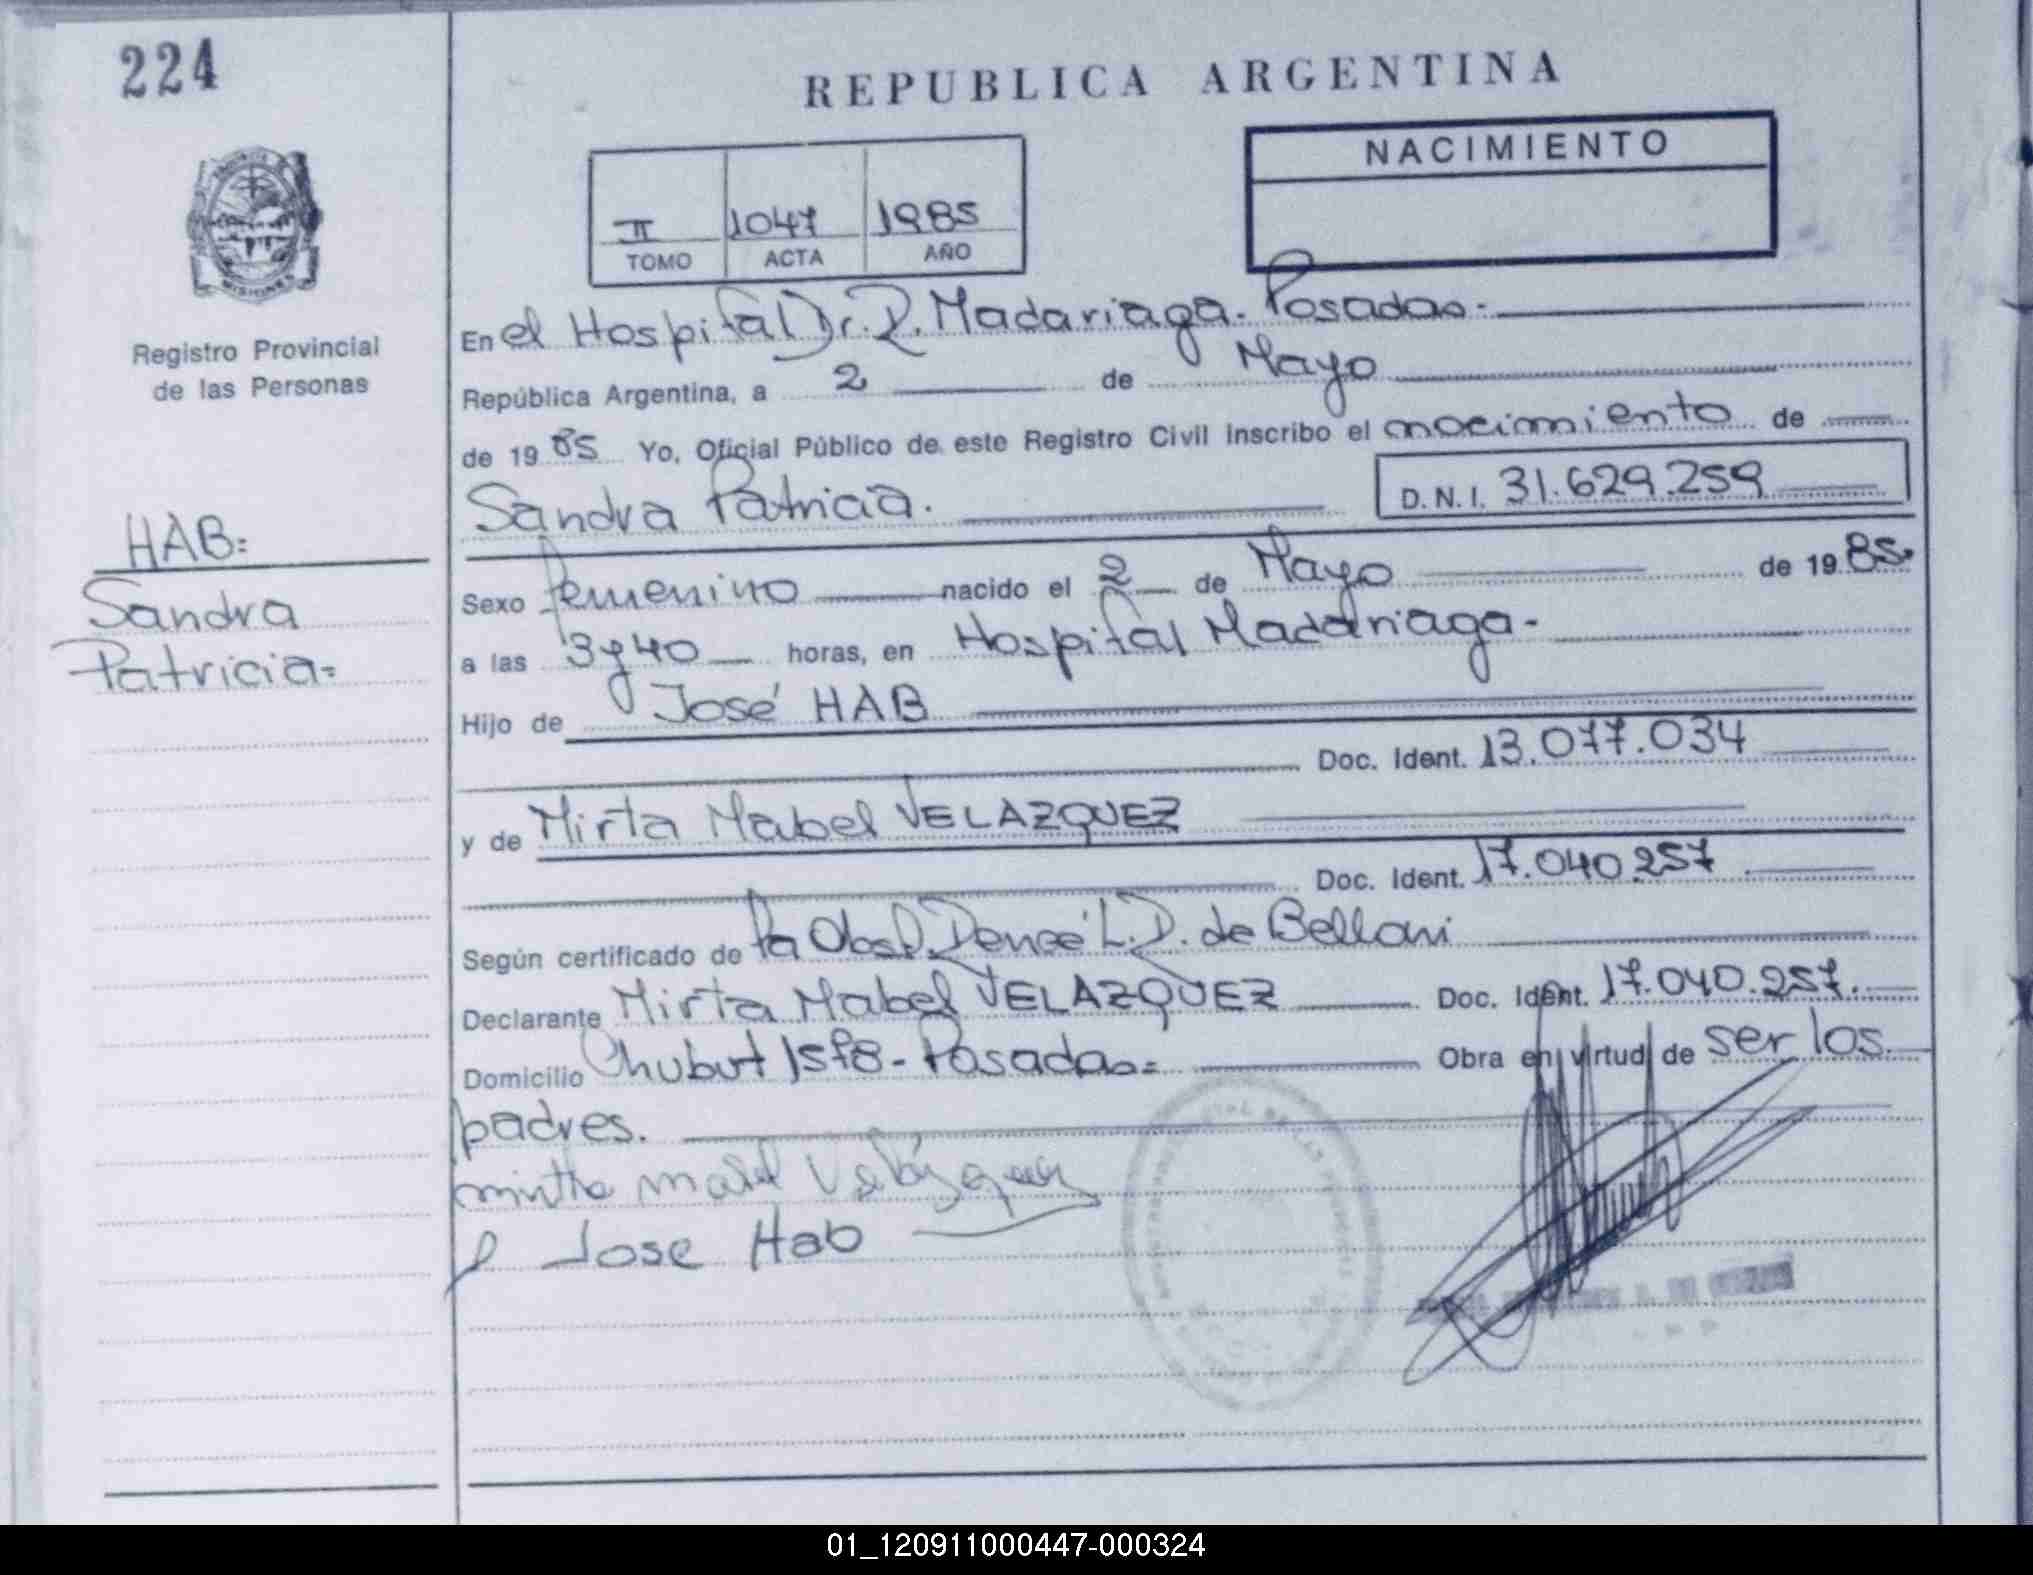 224
REPUBLICA ARGENTINA
NACIMIENTO
II 1047 1985
TOMO ACTA AÑO
MISIONES
Registro Provincial
de las Personas
HAB=
Sandra
Patricia=
En el Hospital Dr. R. Madariaga. Posadas.
República Argentina, a 2 de Mayo
de 1985 Yo, Oficial Público de este Registro Civil inscribo el nacimiento de
Sandra Patricia. D.N.I. 31.629.259
Sexo femenino nacido el 2 de Mayo de 1985.
a las 3y40 horas, en Hospital Madariaga.
Hijo de José HAB
Doc. Ident. 13.077.034
y de Mirta Mabel VELAZQUEZ
Doc. Ident. 17.040.257
Según certificado de la Obst. L.D. de Belloni
Declarante Mirta Mabel VELAZQUEZ Doc. Ident. 17.040.257.
Domicilio Chubut Posadas= Obra en virtud de ser los
padres.
mirtha mabel Velázquez
Jose Hab
01_120911000447-000324